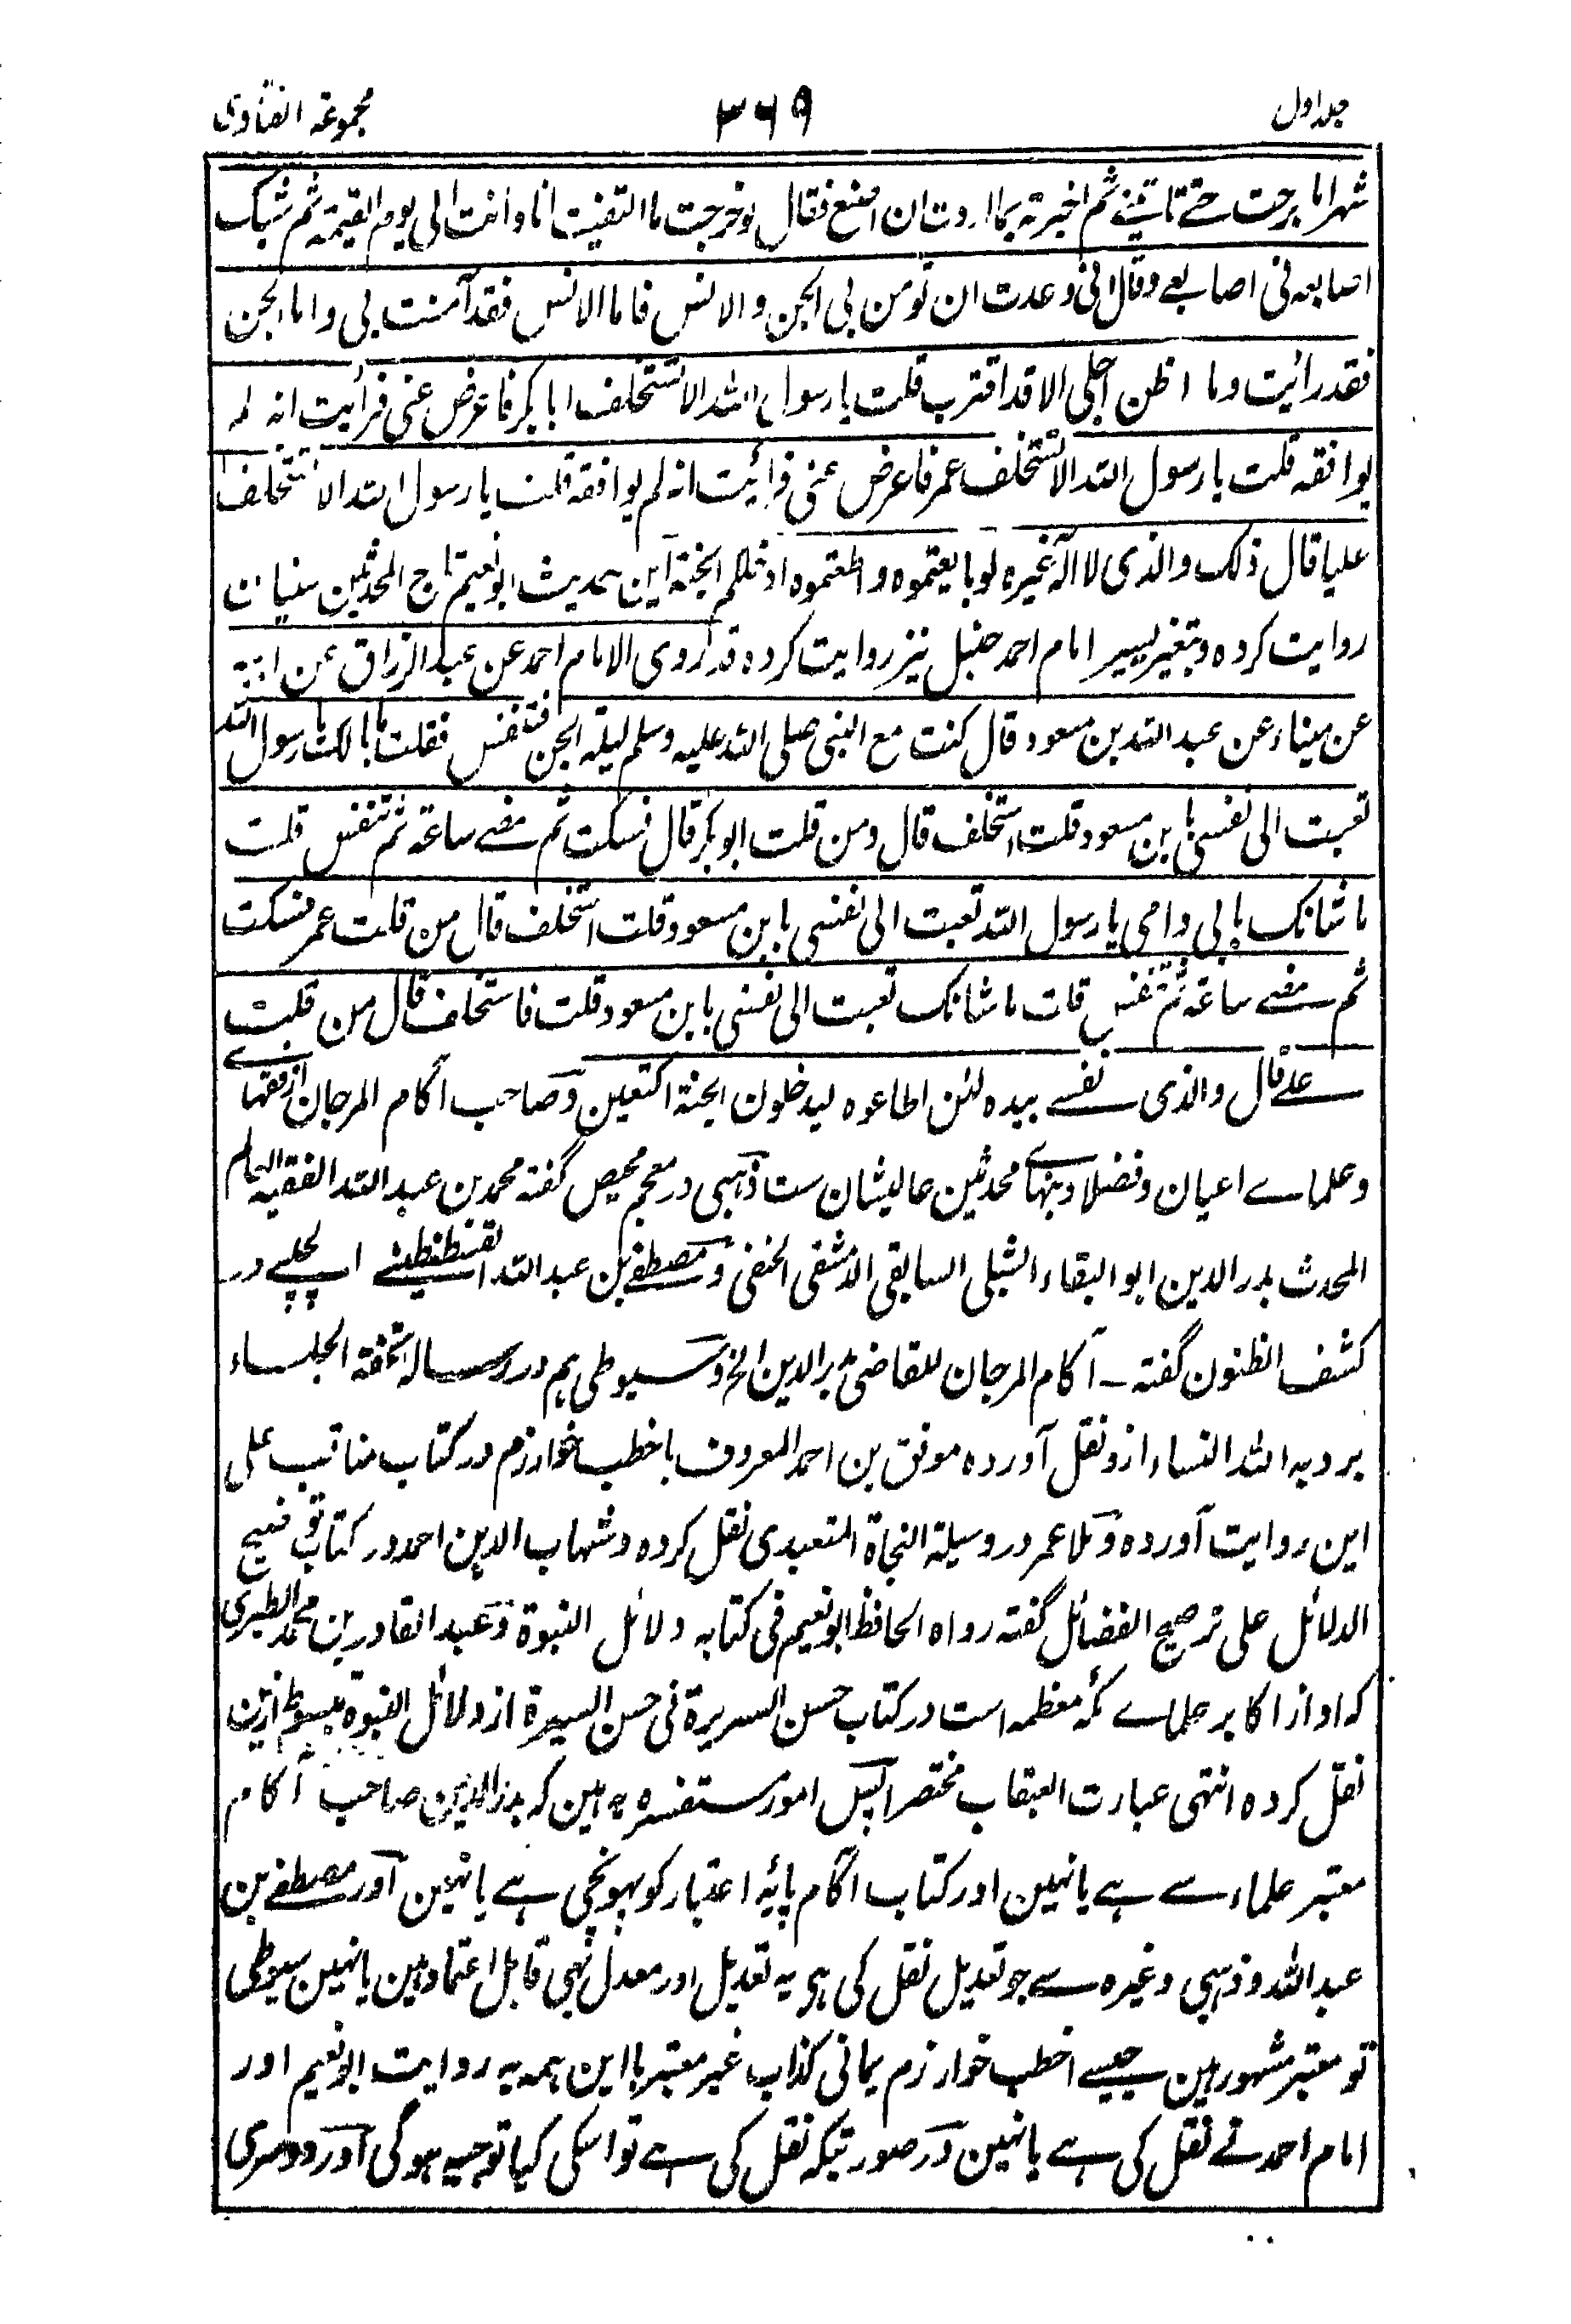 جلد اول ۳۶۹ مجموعۃ الفتاوی
شہرا ما برحت حتے تاتینے ثم اخبرتہ بما اردت ان اصنع فقال لو خرجت ما التقیت انا وانت الی یوم القیمۃ ثم شبک
اصابعہ فی اصابعے وقال انی وعدت ان تومن بی الجن والانس فاما الانس فقد آمنت بی واما الجن
فقد رائیت وما اظن اجلی الا قد اقترب قلت یا رسول اللہ الا تستخلف ابا بکر فاعرض عنی فرأیت انہ لم
یوافقہ قلت یا رسول اللہ الا تستخلف عمر فاعرض عنی فرائیت انہ لم یوافقہ قلت یا رسول اللہ الا تستخلف
علیا قال ذلک والذی لا الہ غیرہ لو بایعتموہ واطعتموہ ادخلکم الجنۃ این حدیث ابو نعیم تاج المحدثین
روایت کردہ وبتغیر یسیر امام احمد حنبل نیز روایت کردہ قد روی الامام احمد عن عبد الرزاق عن ابیہ
عن میناء عن عبد اللہ بن مسعود قال کنت مع النبی صلی اللہ علیہ وسلم لیلۃ الجن فتنفس فقلت ما لک یا رسول اللہ
نعیت الی نفسی یا بن مسعود قلت استخلف قال ومن قلت ابو بکر قال فسکت ثم مضے ساعۃ ثم تنفس قلت
ما شانک بابی وامی یا رسول اللہ نعیت الی نفسی یا بن مسعود قلت استخلف قال من قلت عمر فسکت
ثم مضے ساعۃ ثم تنفس قلت ما شانک نعیت الی نفسی یا بن مسعود قلت فاستخلف قال من قلت
علے قال والذی نفسے بیدہ لئن اطاعوہ لیدخلون الجنۃ اکتعین وصاحب آکام المرجان از فقہاے
وعلماے اعیان وفضلا ونبہاے محدثین عالیشان ست ذہبی در معجم مختص گفتہ محمد بن عبد اللہ الفقیہ العالم
المحدث بدر الدین ابو البقاء الشبلی السابقی الدمشقی الحنفی ومصطفے بن عبد اللہ القسطنطینے الچلپے در
کشف الظنون گفتہ ۔ آکام المرجان للقاضی بدر الدین الخ وسیوطی ہم در رسالہ تحفۃ الجلساء
برویۃ اللہ النساء ازو نقل آوردہ موفق بن احمد المعروف باخطب خوارزم در کتاب مناقب علی
این روایت آوردہ وملا عمر در وسیلۃ النجاۃ المتعبدی نقل کردہ وشہاب الدین احمد در کتاب توضیح
الدلائل علی ترجیح الفضائل گفتہ رواہ الحافظ ابو نعیم فی کتابہ دلائل النبوۃ وعبد القادر بن محمد الطبری
کہ او از اکابر علماے مکہ معظمہ است در کتاب حسن السریرۃ فی حسن السیرۃ از دلائل النبوۃ مبسوط ازین
نقل کردہ انتہی عبارت العبقات مختصرا پس امور مستفسرہ یہ ہین کہ بدر الدین صاحب آکام
معتبر علماء سے ہے یا نہین اور کتاب آکام پایۂ اعتبار کو پہونچی ہے یا نہین اور مصطفے بن
عبد اللہ وذہبی وغیرہ سے جو تعدیل نقل کی ہو یہ تعدیل اور معدل بھی قابل اعتماد ہین یا نہین سیوطی
تو معتبر مشہور ہین جیسے اخطب خوارزم یمانی کذاب غیر معتبر با این ہمہ یہ روایت ابو نعیم اور
امام احمد نے نقل کی ہے یا نہین در صورتیکہ نقل کی ہے تو اسکی کیا توجیہ ہوگی اور دوسری